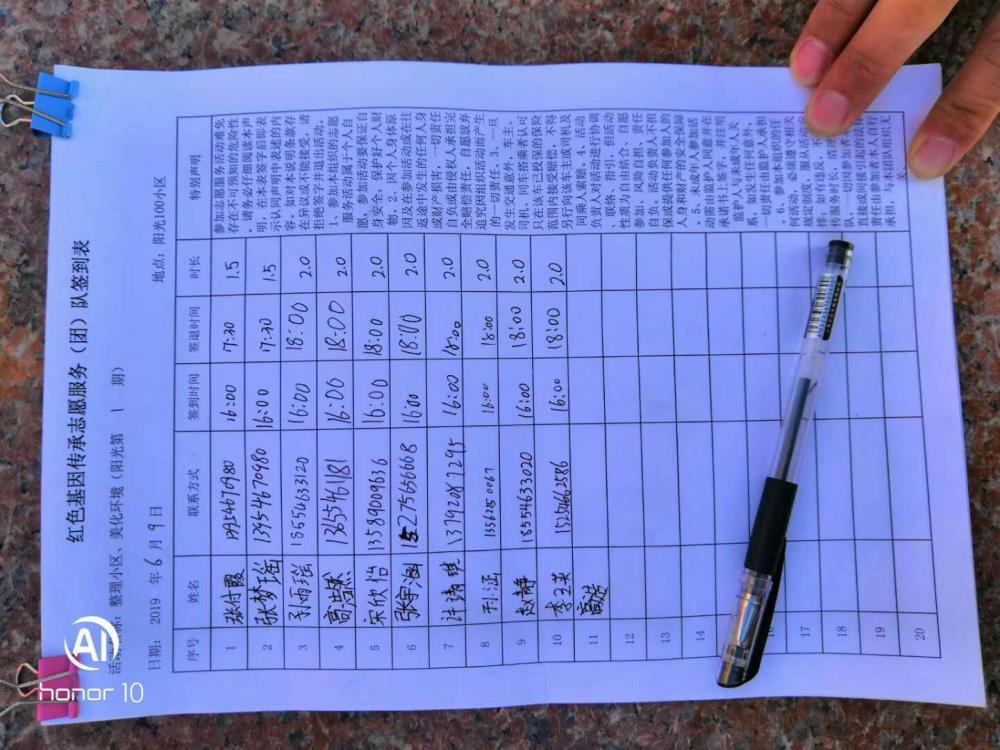 红色基因传承志愿服务（团）队签到表
整理小区、美化环境（阳光第 1 期）
日期：2019 年 6 月 9 日 地点：阳光100小区
序号 姓名 联系方式 签到时间 签退时间 时长 特别声明
1 张付霞 16:00 17:30 1.5
2 张梦瑶 13954670980 16:00 17:30 1.5
3 孙雨瑶 18554633120 16:00 18:00 2.0
4 高浩然 16:00 18:00 2.0
5 宋欣怡 13589009636 16:00 18:00 2.0
6 张宇涵 16:00 18:00 2.0
7 许靖琪 16:00 18:00 2.0
8 16:00 18:00 2.0
9 赵静 18554633020 16:00 18:00 2.0
10 李玉英 16:00 18:00 2.0
11 高洁
12
13
14
17
18
19
20
参加志愿服务活动难免
存在不可预知的危险性
，请务必仔细阅读本声
明，在本表签字后即表
示认同声明中表述的内
容。如对本说明条款存
在异议或不能接受，请
拒绝签字并退出活动。
1、参加本组织的志愿
服务活动属于个人自
愿，参加活动要保证自
身安全，保护好个人财
物。2、因个人身体原
因及在参加活动或在往
返途中发生的任何人身
或财产损害，一切责任
自负或由侵权人承担完
全赔偿责任，自愿放弃
追究因组织活动而产生
的一切责任。3、一旦
发生交通意外，车主、
司机、同车搭乘者认可
只在该车已投保的保险
范围内接受赔偿，不得
另行向该车主或司机及
同乘人索赔。4、活动
负责人对活动进行协调
、联络、指引，但活动
性质为自由结合、自愿
参加、风险自担、责任
自负。活动负责人不担
保或提供任何参加人的
人身和财产的安全保障
。5、未成年人参加活
动需由监护人同意并在
承诺书上签字，并注明
监护人与未成年人关
系，如发生任何意外，
一切责任由监护人承担
。6、参加本组织的任
何活动，必须遵守相关
规定制度，服从活动
挥；如有违反，不
传服务时长，清理
队。一切因参加者
直接或间接引起的法律
责任由参加者本人自行
承担，与本团队组织无
关。
AI
honor 10